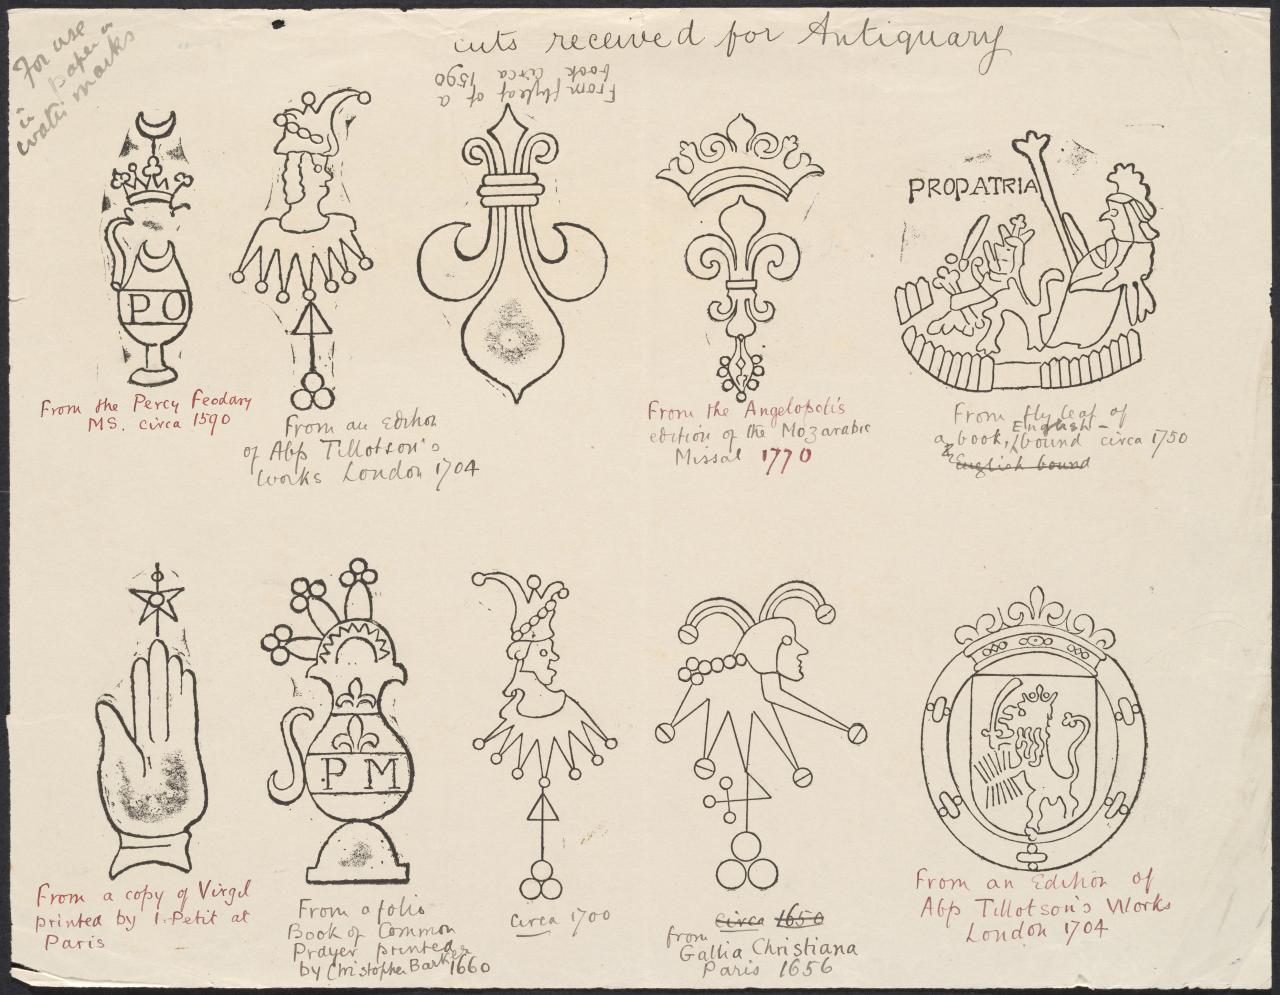 For use
in paper on
water marks
cuts received for Antiquary
From flyleaf of a
book circa 1590
PROPATRIA
PO
From the Percy Feodary
MS. circa 1590
From an edition
of Abp Tillotson's
works London 1704
From the Angelopolis
edition of the Mozarabic
Missal 1770
From fly leaf of
a book, English-bound circa 1750
& English bound
PM
From a copy of Virgil
printed by I. Petit at
Paris
From a folio
Book of Common
Prayer printed
by Christopher Barker 1660
circa 1700
circa 1650
from
Gallia Christiana
Paris 1656
From an Edition of
Abp Tillotson's Works
London 1704